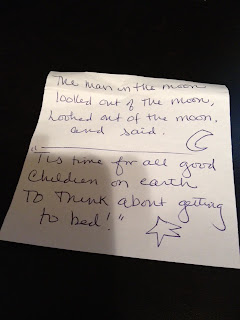 The man in the moon
looked out of the moon,
Looked out of the moon,
and said.
"Tis time for all good
Children on earth
To Think about getting
to bed!"